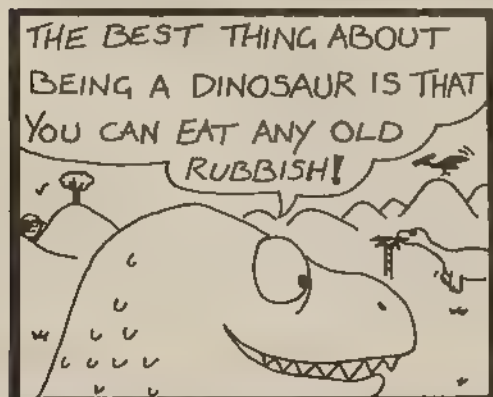 THE BEST THING ABOUT
BEING A DINOSAUR IS THAT
YOU CAN EAT ANY OLD
RUBBISH!